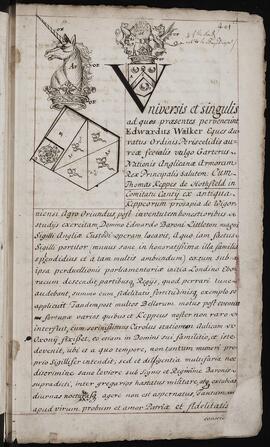 401
Ar
OR
Universis et singulis
ad quos præsentes pervenerint
Edwardus Walker Eques Au
ratus Ordinis Periscelidis au
reæ fecialis vulgo Garterus
Nationis Anglicanæ Armorum
Rex Principalis Salutem. Cum
Thomas Kippes de Hothfeild in
Comitatu Cantij ex antiqua
Kippeorum prosapia de Wigor
niensi Agro Oriundus post inventutem honestioribus
studijs exercitam Domino Edwardo Baroni Littleton magni
Sigilli Angliæ Custodi operam locavit, A quo iam factus
Sigilli portitor, munus sane in honoratissima illa familia
splendidius et a tam multis ambiendum) exin sub
ipsa perduellionis parliamentariæ initia Londino Ebo
racum descendit partibusque Regijs, quod perrari tunc
audebant, summo cum fidelitate fortitudinisque exemplo se
applicuit. Tandem post multos Bellorum motus post eventus
fortunæ varios quibus et Kippeus noster non raro in
terfuit, cum serenissimus Carolus stationem aulicam ex
Oxonij fixisset, eo etiam in Domini sui familitio, et iste
devenit, ubi et a quo tempore, non tantum muneri pro
prio Sigillifer intendit, sed et diligentia multifaria nec
discrimine sane leviore sub Signo et Regimine Baronis
supradicti, inter gregarios hastatus militare,
diurnas nocturnasque agere non est aspernatus, Tantum
apud virum probum et amor Patriæ et fidelitatis